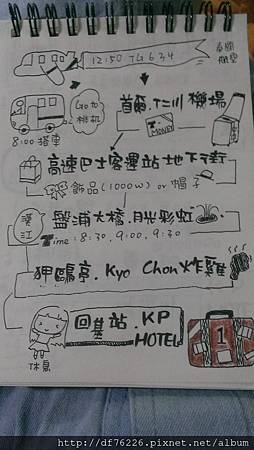 12:50 TG634
泰國
航空
Go to
桃机
8:00 搭車
首爾.仁川 機場
T-MONEY
高速巴士客運站地下街
飾品(1000w) or 帽子
漢江
盤浦大橋.月光彩虹
Time:8:30,9:00,9:30
狎鷗亭.Kyo Chon炸雞
回基站.KP
HOTEL
休息
1
http://df76226.pixnet.net/album